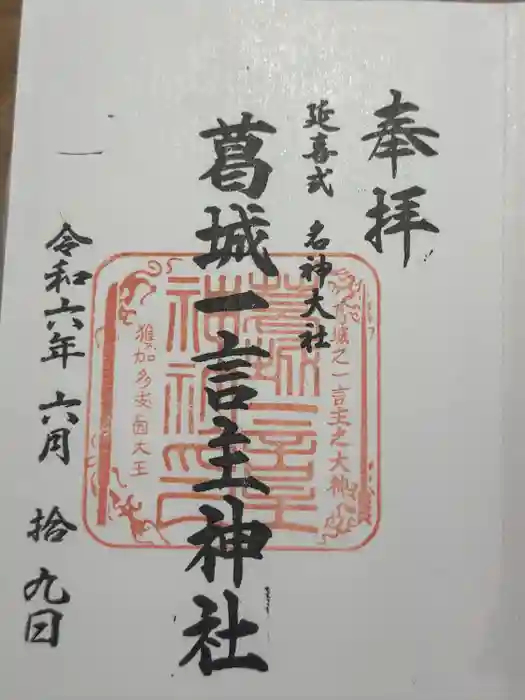 奉拝
延喜式 名神大社
葛城一言主神社
令和六年 六月 拾九日
葛城之一言主之大神
葛城一言主神社印